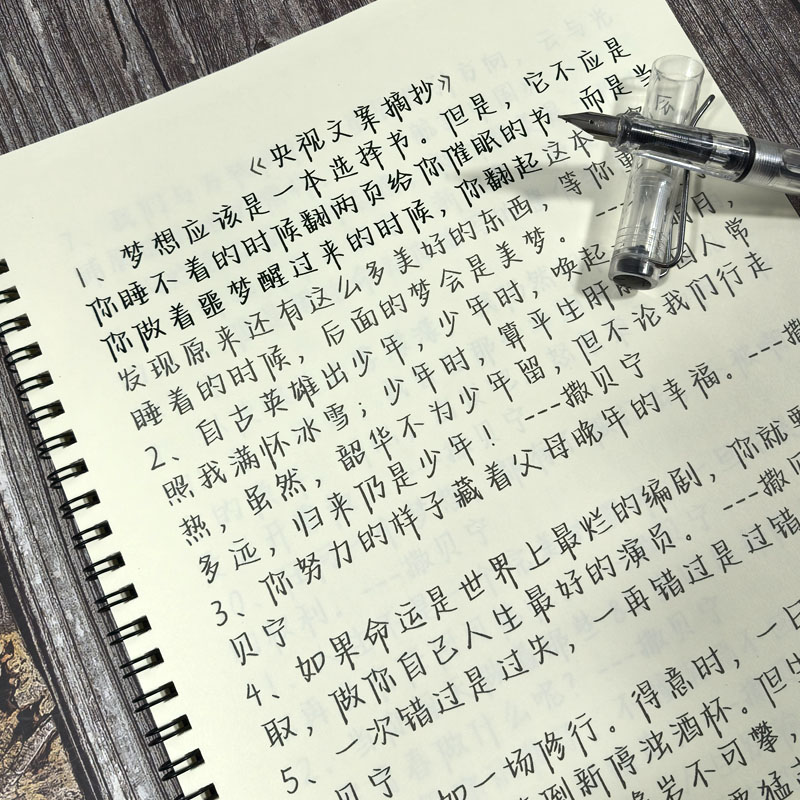 《央视文案摘抄》
1、梦想应该是一本选择书。但是，它不应是
你睡不着的时候翻两页给你催眠的书，而是当
你做着噩梦醒过来的时候，你翻起这本 会
发现原来还有这么多美好的东西，等你重
睡着的时候，后面的梦会是美梦。---
2、自古英雄出少年，少年时，唤起 明月，
照我满怀冰雪；少年时，算平生肝 因人常
热，虽然，韶华不为少年留，但不论我们行走
多远，归来仍是少年！---撒贝宁
3、你努力的样子藏着父母晚年的幸福。---撒
贝宁
4、如果命运是世界上最烂的编剧，你就要
取，做你自己人生最好的演员。---撒贝
5、一次错过是过失，一再错过是过错
贝宁
如一场修行。得意时，一日
倒新停浊酒杯。但生
岩不可攀，
要猛